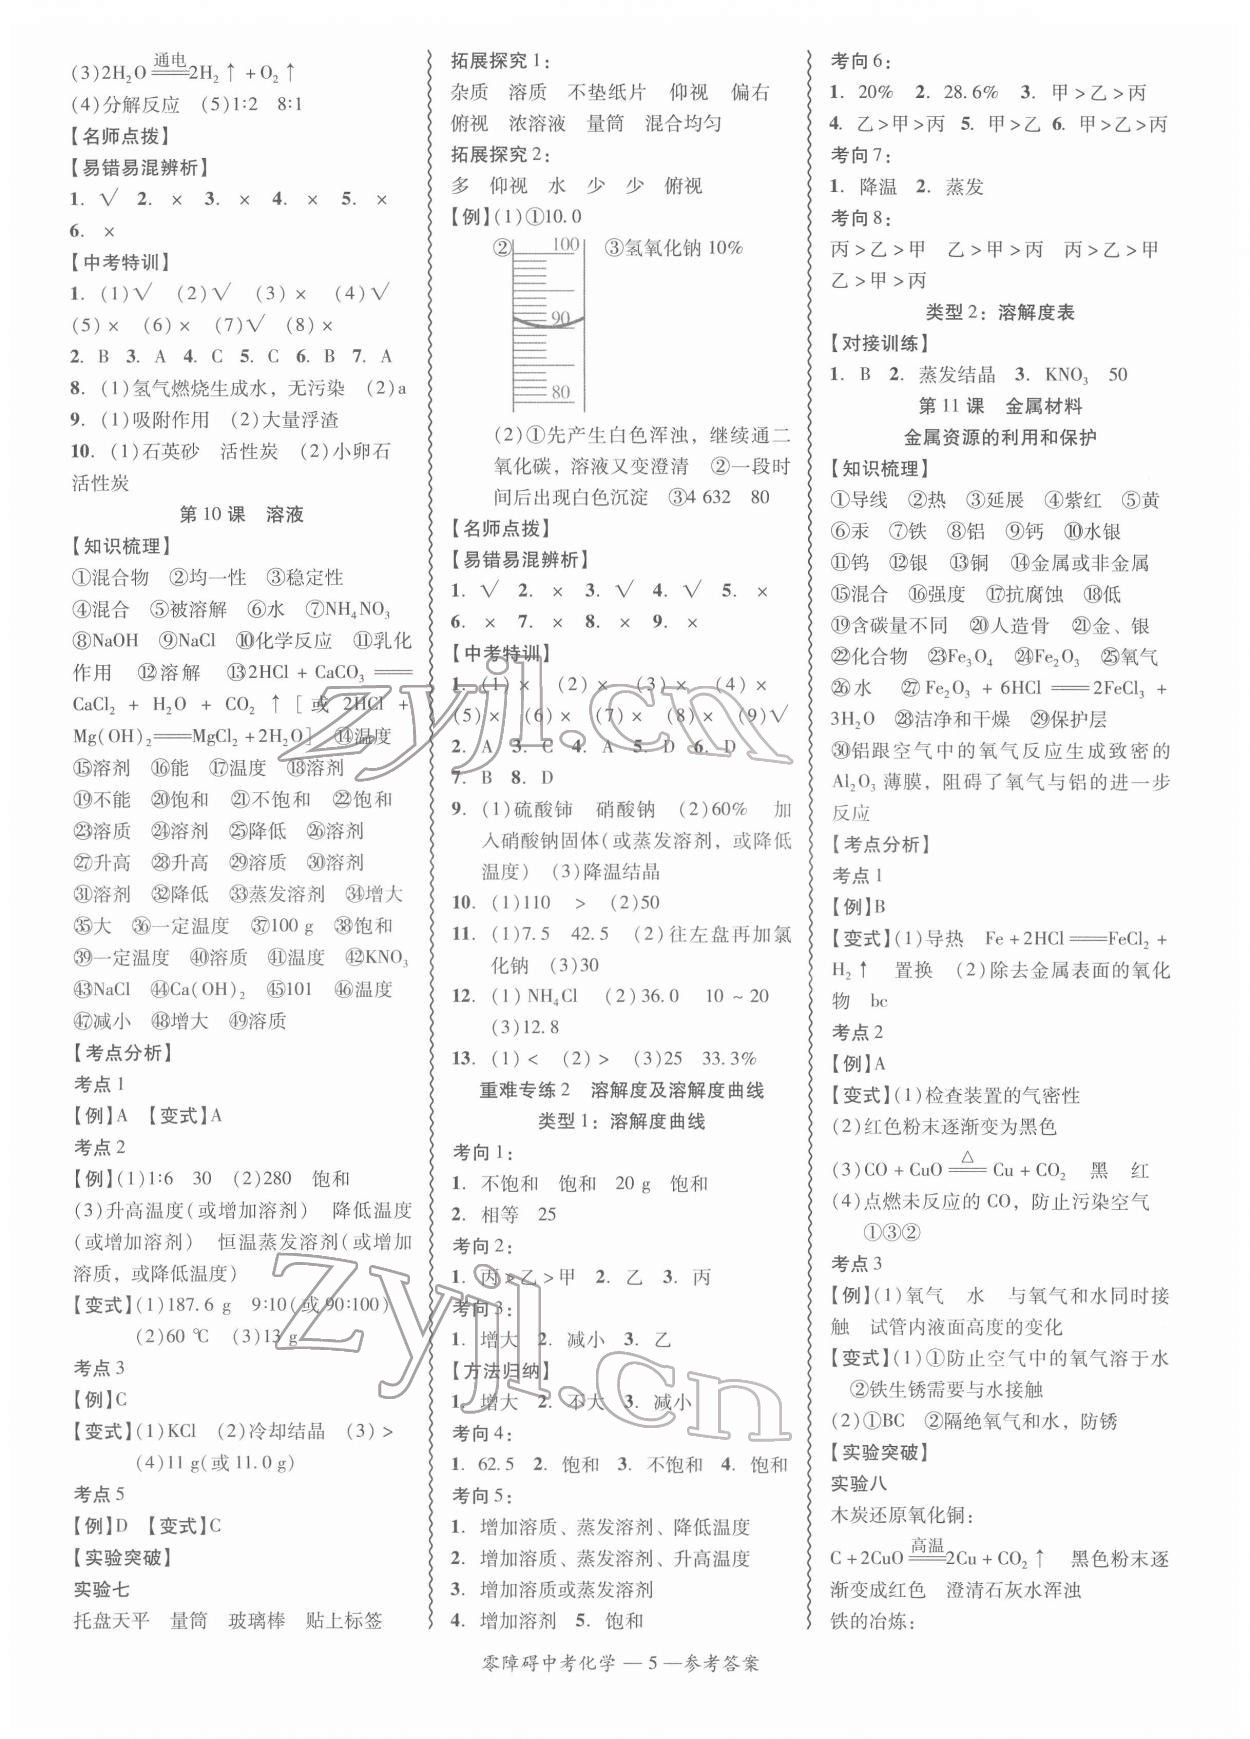 (3)2H₂O 通电═══ 2H₂↑+O₂↑
(4)分解反应 (5)1∶2 8∶1
【名师点拨】
【易错易混辨析】
1. √ 2. × 3. × 4. × 5. ×
6. ×
【中考特训】
1. (1)√ (2)√ (3)× (4)√
(5)× (6)× (7)√ (8)×
2. B 3. A 4. C 5. C 6. B 7. A
8. (1)氢气燃烧生成水，无污染 (2)a
9. (1)吸附作用 (2)大量浮渣
10. (1)石英砂 活性炭 (2)小卵石
活性炭
第 10 课 溶液
【知识梳理】
①混合物 ②均一性 ③稳定性
④混合 ⑤被溶解 ⑥水 ⑦NH₄NO₃
⑧NaOH ⑨NaCl ⑩化学反应 ⑪乳化
作用 ⑫溶解 ⑬2HCl + CaCO₃ ═══
CaCl₂ + H₂O + CO₂ ↑［或 2HCl +
Mg(OH)₂═══MgCl₂+2H₂O］ ⑭温度
⑮溶剂 ⑯能 ⑰温度 ⑱溶剂
⑲不能 ⑳饱和 ㉑不饱和 ㉒饱和
㉓溶质 ㉔溶剂 ㉕降低 ㉖溶剂
㉗升高 ㉘升高 ㉙溶质 ㉚溶剂
㉛溶剂 ㉜降低 ㉝蒸发溶剂 ㉞增大
㉟大 ㊱一定温度 ㊲100 g ㊳饱和
㊴一定温度 ㊵溶质 ㊶温度 ㊷KNO₃
㊸NaCl ㊹Ca(OH)₂ ㊺101 ㊻温度
㊼减小 ㊽增大 ㊾溶质
【考点分析】
考点 1
【例】A 【变式】A
考点 2
【例】(1)1∶6 30 (2)280 饱和
(3)升高温度(或增加溶剂) 降低温度
(或增加溶剂) 恒温蒸发溶剂(或增加
溶质，或降低温度)
【变式】(1)187.6 g 9∶10(或90∶100)
(2)60 ℃ (3)13 g
考点 3
【例】C
【变式】(1)KCl (2)冷却结晶 (3)>
(4)11 g(或 11.0 g)
考点 5
【例】D 【变式】C
【实验突破】
实验七
托盘天平 量筒 玻璃棒 贴上标签
拓展探究 1：
杂质 溶质 不垫纸片 仰视 偏右
俯视 浓溶液 量筒 混合均匀
拓展探究 2：
多 仰视 水 少 少 俯视
【例】(1)①10.0
② 100 ③氢氧化钠 10%
90
80
(2)①先产生白色浑浊，继续通二
氧化碳，溶液又变澄清 ②一段时
间后出现白色沉淀 ③4 632 80
【名师点拨】
【易错易混辨析】
1. √ 2. × 3. √ 4. √ 5. ×
6. × 7. × 8. × 9. ×
【中考特训】
1. (1)× (2)× (3)× (4)×
(5)× (6)× (7)× (8)× (9)√
2. A 3. C 4. A 5. D 6. D
7. B 8. D
9. (1)硫酸铈 硝酸钠 (2)60% 加
入硝酸钠固体(或蒸发溶剂，或降低
温度) (3)降温结晶
10. (1)110 > (2)50
11. (1)7.5 42.5 (2)往左盘再加氯
化钠 (3)30
12. (1)NH₄Cl (2)36.0 10～20
(3)12.8
13. (1)< (2)> (3)25 33.3%
重难专练 2 溶解度及溶解度曲线
类型 1：溶解度曲线
考向 1：
1. 不饱和 饱和 20 g 饱和
2. 相等 25
考向 2：
1. 丙>乙>甲 2. 乙 3. 丙
考向 3：
1. 增大 2. 减小 3. 乙
【方法归纳】
1. 增大 2. 不大 3. 减小
考向 4：
1. 62.5 2. 饱和 3. 不饱和 4. 饱和
考向 5：
1. 增加溶质、蒸发溶剂、降低温度
2. 增加溶质、蒸发溶剂、升高温度
3. 增加溶质或蒸发溶剂
4. 增加溶剂 5. 饱和
考向 6：
1. 20% 2. 28.6% 3. 甲>乙>丙
4. 乙>甲>丙 5. 甲>乙 6. 甲>乙>丙
考向 7：
1. 降温 2. 蒸发
考向 8：
丙>乙>甲 乙>甲>丙 丙>乙>甲
乙>甲>丙
类型 2：溶解度表
【对接训练】
1. B 2. 蒸发结晶 3. KNO₃ 50
第 11 课 金属材料
金属资源的利用和保护
【知识梳理】
①导线 ②热 ③延展 ④紫红 ⑤黄
⑥汞 ⑦铁 ⑧铝 ⑨钙 ⑩水银
⑪钨 ⑫银 ⑬铜 ⑭金属或非金属
⑮混合 ⑯强度 ⑰抗腐蚀 ⑱低
⑲含碳量不同 ⑳人造骨 ㉑金、银
㉒化合物 ㉓Fe₃O₄ ㉔Fe₂O₃ ㉕氧气
㉖水 ㉗Fe₂O₃ + 6HCl ═══2FeCl₃ +
3H₂O ㉘洁净和干燥 ㉙保护层
㉚铝跟空气中的氧气反应生成致密的
Al₂O₃ 薄膜，阻碍了氧气与铝的进一步
反应
【考点分析】
考点 1
【例】B
【变式】(1)导热 Fe+2HCl═══FeCl₂+
H₂↑ 置换 (2)除去金属表面的氧化
物 bc
考点 2
【例】A
【变式】(1)检查装置的气密性
(2)红色粉末逐渐变为黑色
(3)CO+CuO △═══ Cu+CO₂ 黑 红
(4)点燃未反应的 CO，防止污染空气
①③②
考点 3
【例】(1)氧气 水 与氧气和水同时接
触 试管内液面高度的变化
【变式】(1)①防止空气中的氧气溶于水
②铁生锈需要与水接触
(2)①BC ②隔绝氧气和水，防锈
【实验突破】
实验八
木炭还原氧化铜：
C+2CuO 高温═══ 2Cu+CO₂↑ 黑色粉末逐
渐变成红色 澄清石灰水浑浊
铁的冶炼：
零障碍中考化学 — 5 —参考答案
zyjl.cn
zyjl.cn